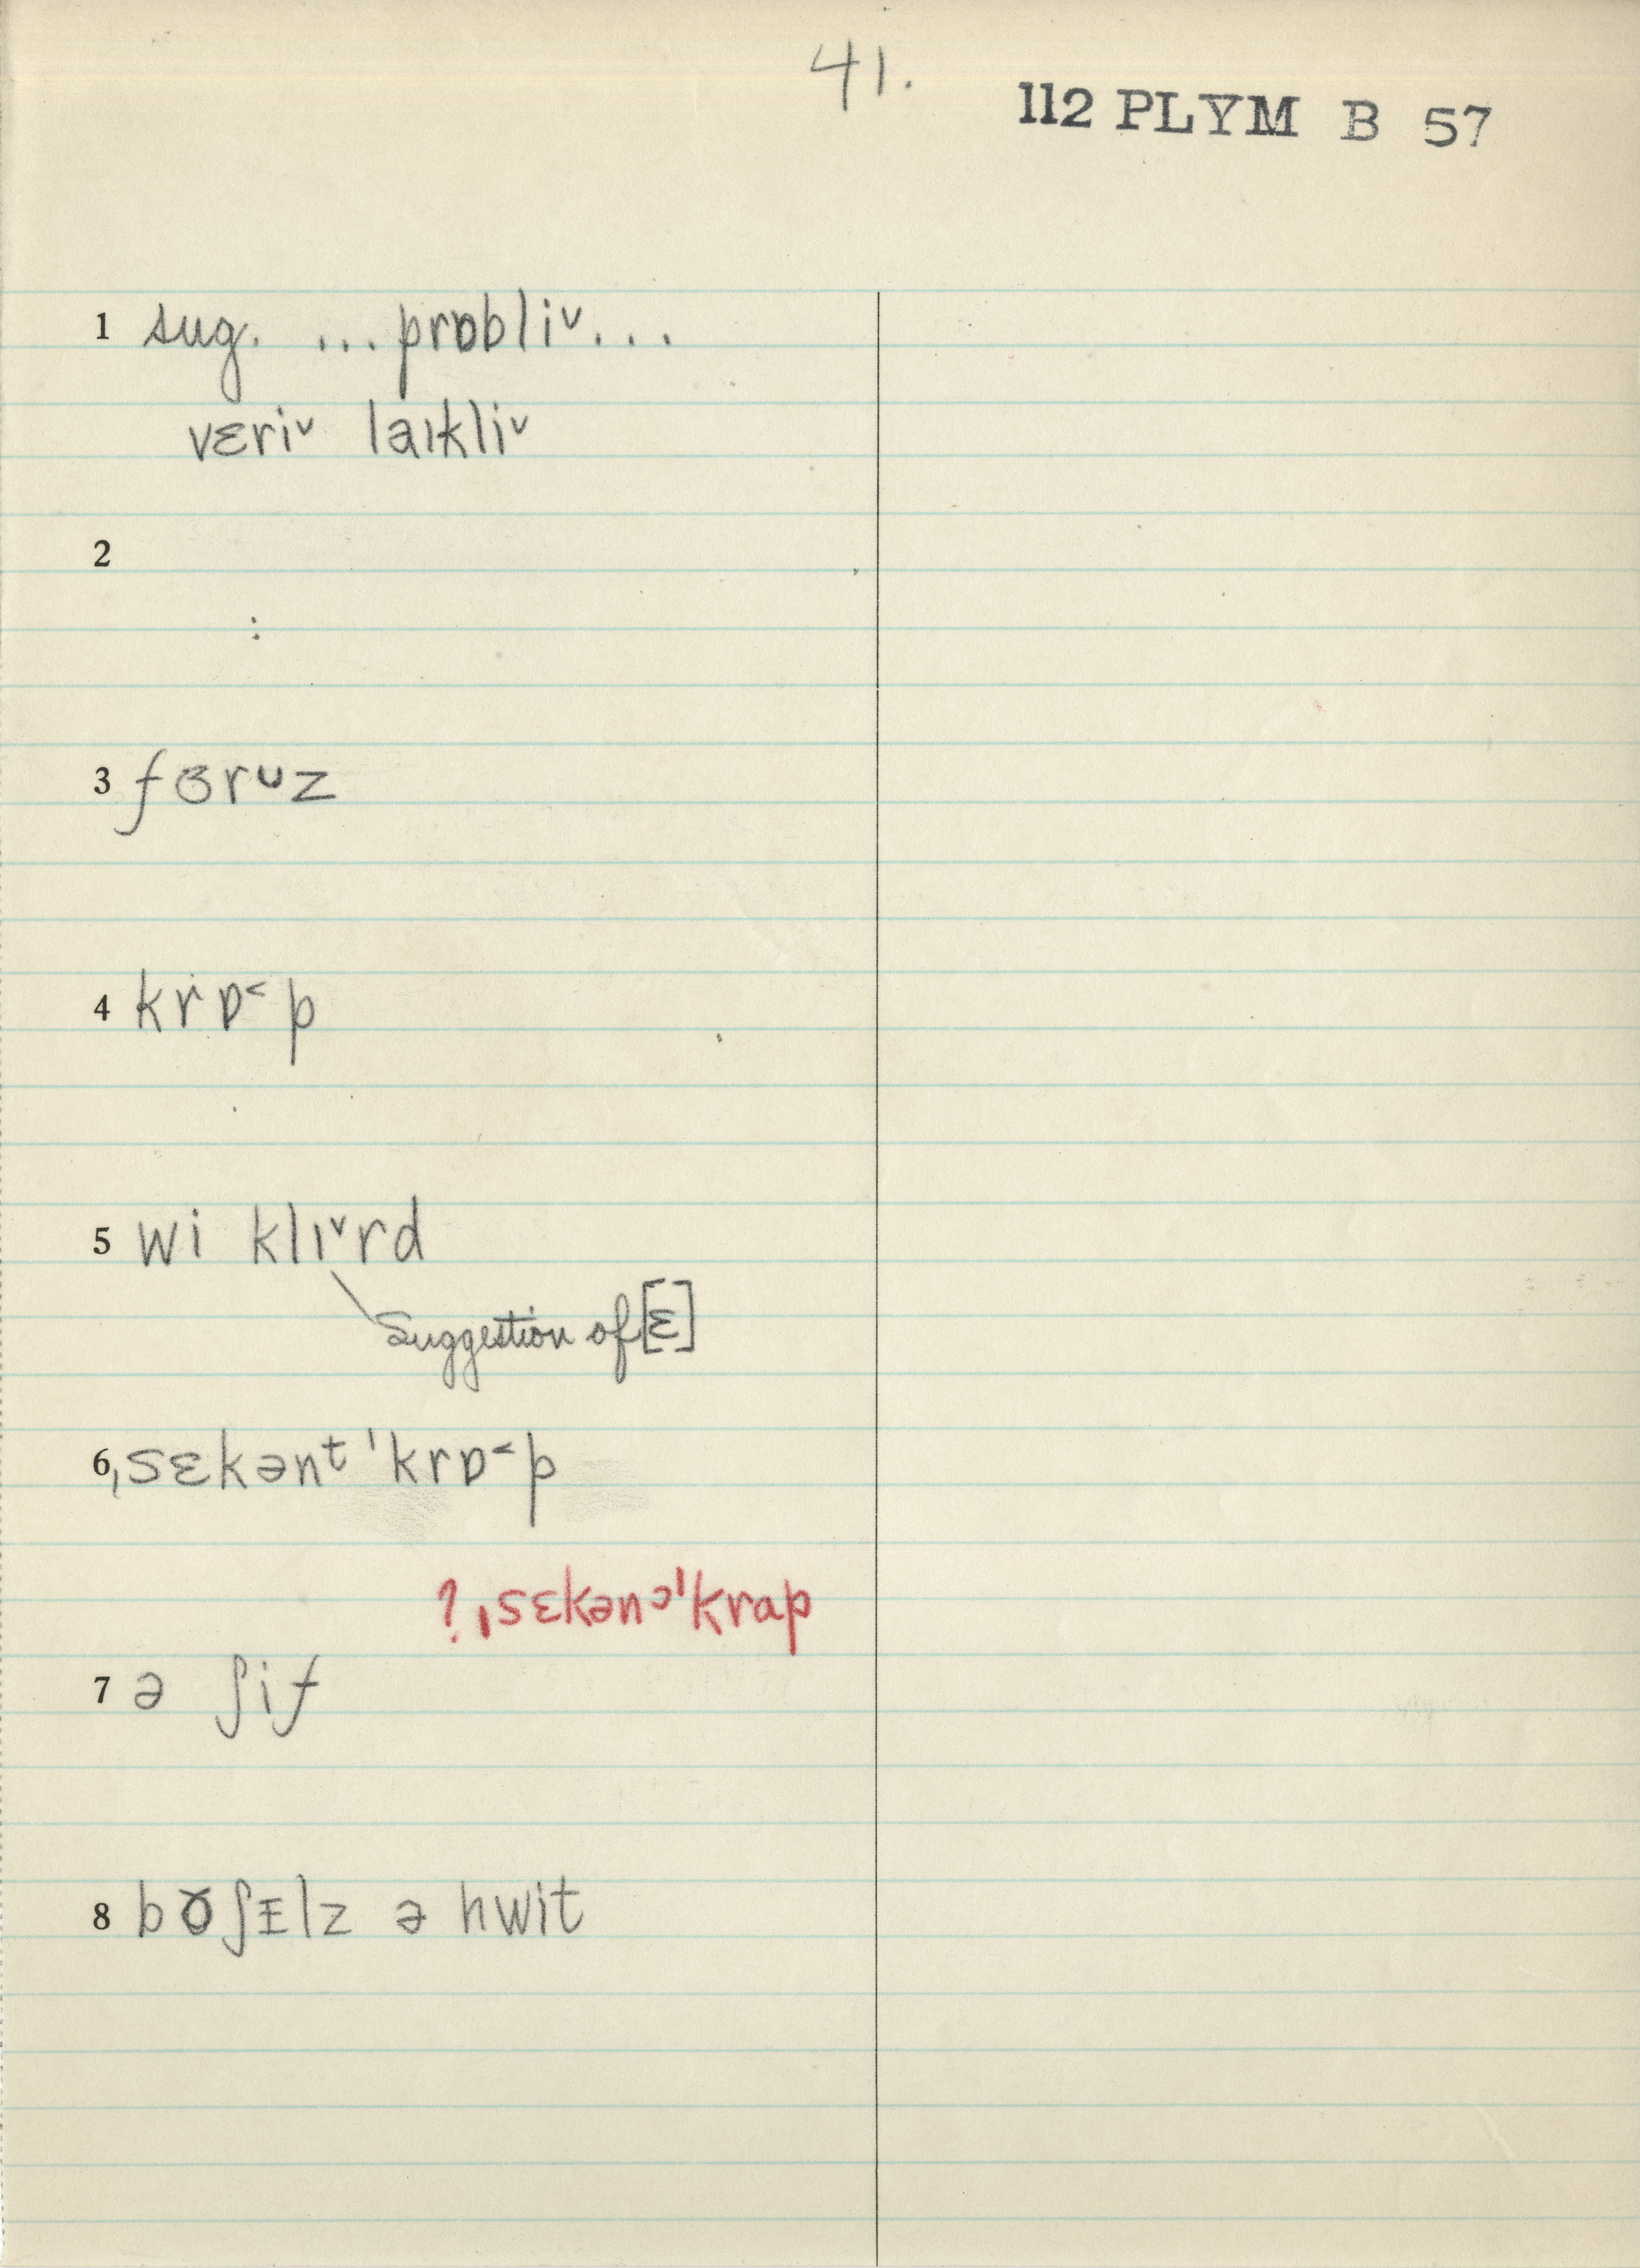 41.
112 PLYM B 57
1 sug. ...prɒbliᵛ...
vɛriᵛ laɪkliᵛ
2
3 fɞrᴜz
4 krɒ˂p
5 wi klɪᵛrd
Suggestion of [ɛ]
6 ˌsɛkənᵗ ˈkrɒ˂p
? ˌsɛkənᵓˈkrap
7 ə ʃif
8 bʊʃᵻlz ə hwit